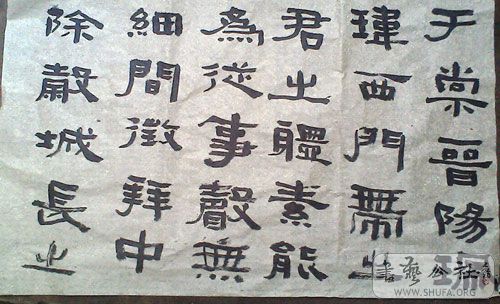 于棠晉陽
瑋西門帶
君之體素能
為從事聲無
細間徵拜中
除穀城長之
書藝公社
WWW.SHUFA.ORG